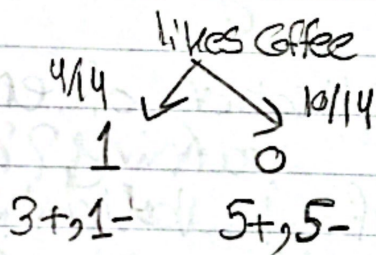 likes Coffee
4/14 10/14
1 0
3+,1- 5+,5-